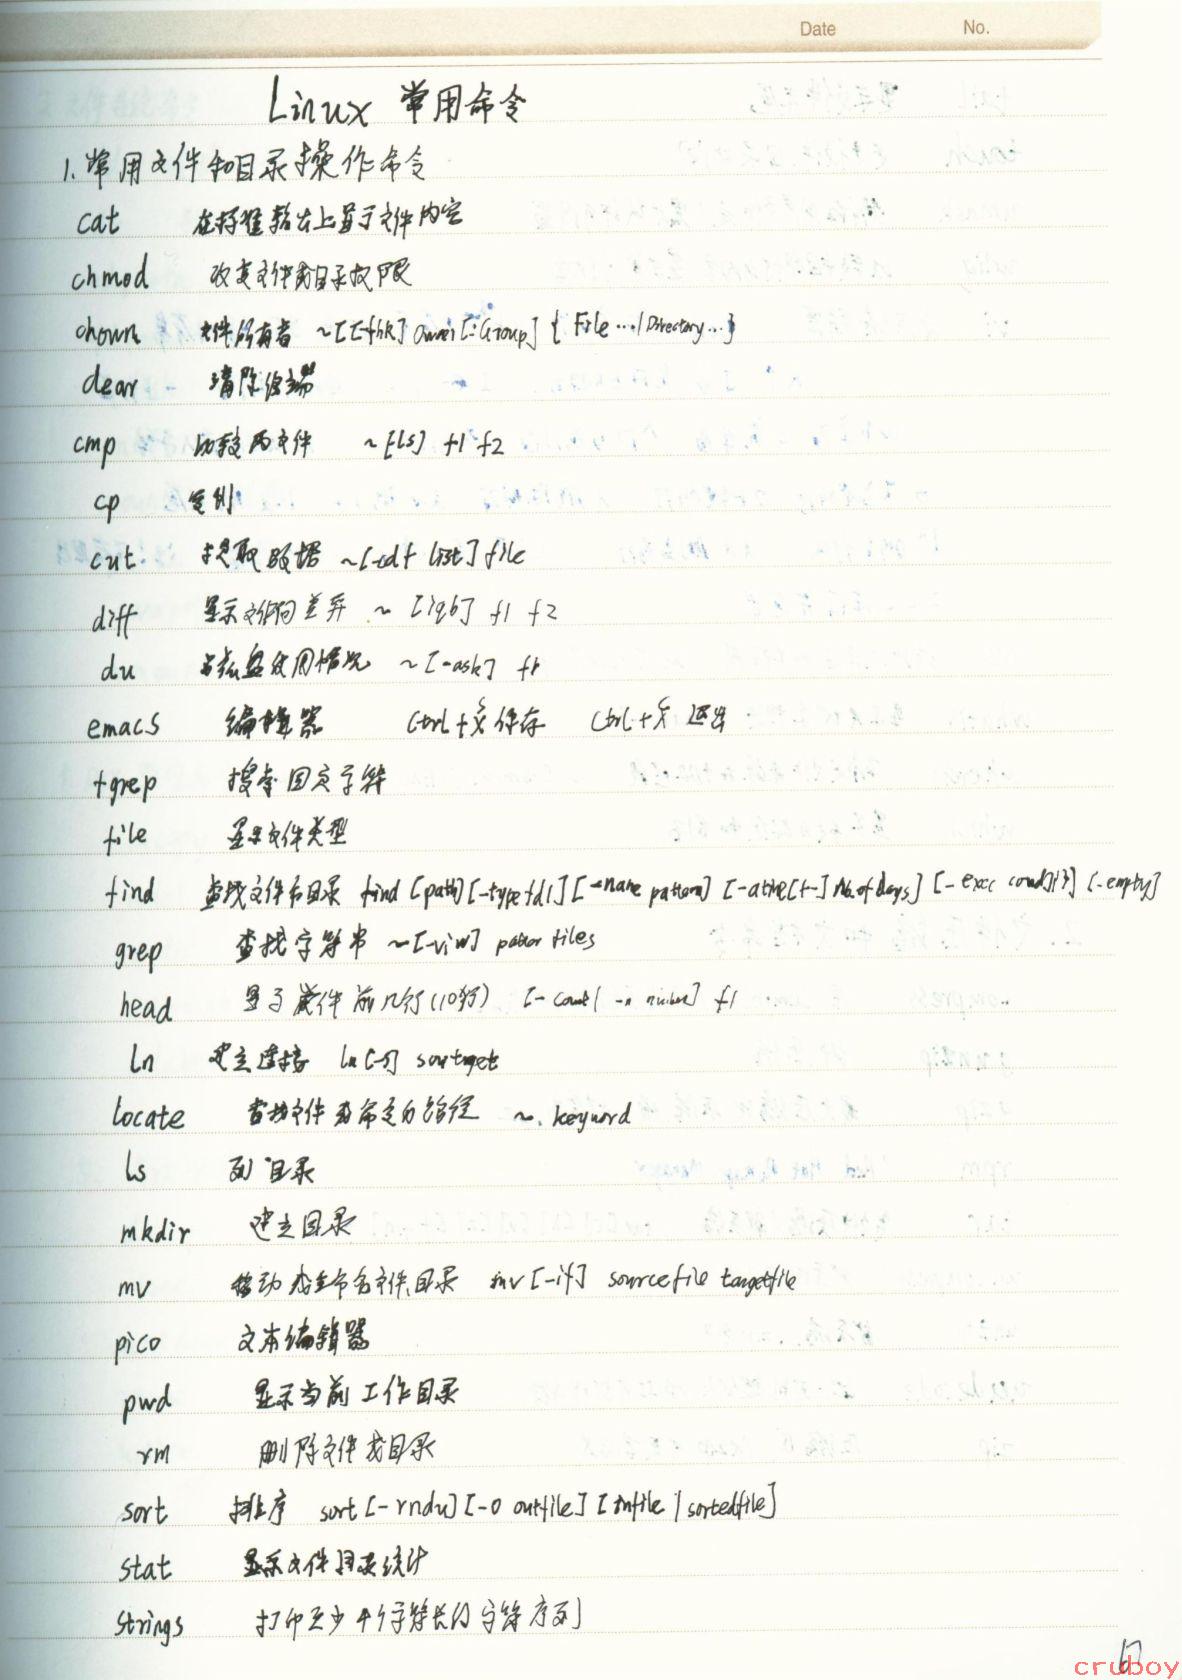 Date No.
Linux 常用命令
1. 常用文件和目录操作命令
cat 在标准输出上显示文件内容
chmod 改变文件或目录权限
chown 文件所有者 ~[[-fhR] Owner[:Group] { File ... | Directory ... }
clear 清除终端
cmp 比较两文件 ~[ls] f1 f2
cp 复制
cut 提取数据 ~[-cdf list] file
diff 显示文件间差异 ~ [iqb] f1 f2
du 磁盘使用情况 ~[-ask] f1
emacs 编辑器 Ctrl+ 保存 Ctrl+ 退出
fgrep 搜索固定字符
file 显示文件类型
find 查找文件和目录 find [path] [-type fdl] [-name pattern] [-atime[+-] No.of days] [-exec cond {}] [-empty]
grep 查找字符串 ~[-viw] files
head 显示 件前几行(10行) [-count| -n number] f1
ln 建立连接 ln [-s]
locate 查找文件 命令的路径 ~. keyword
ls 列目录
mkdir 建立目录
mv 移动或重命名文件,目录 mv [-if] sourcefile targetfile
pico 文本编辑器
pwd 显示当前工作目录
rm 删除文件或目录
sort 排序 sort [-rndu] [-o outfile] [infile | sortedfile]
stat 显示文件 统计
strings 打印至少4个字符长的字符序列
cruboy